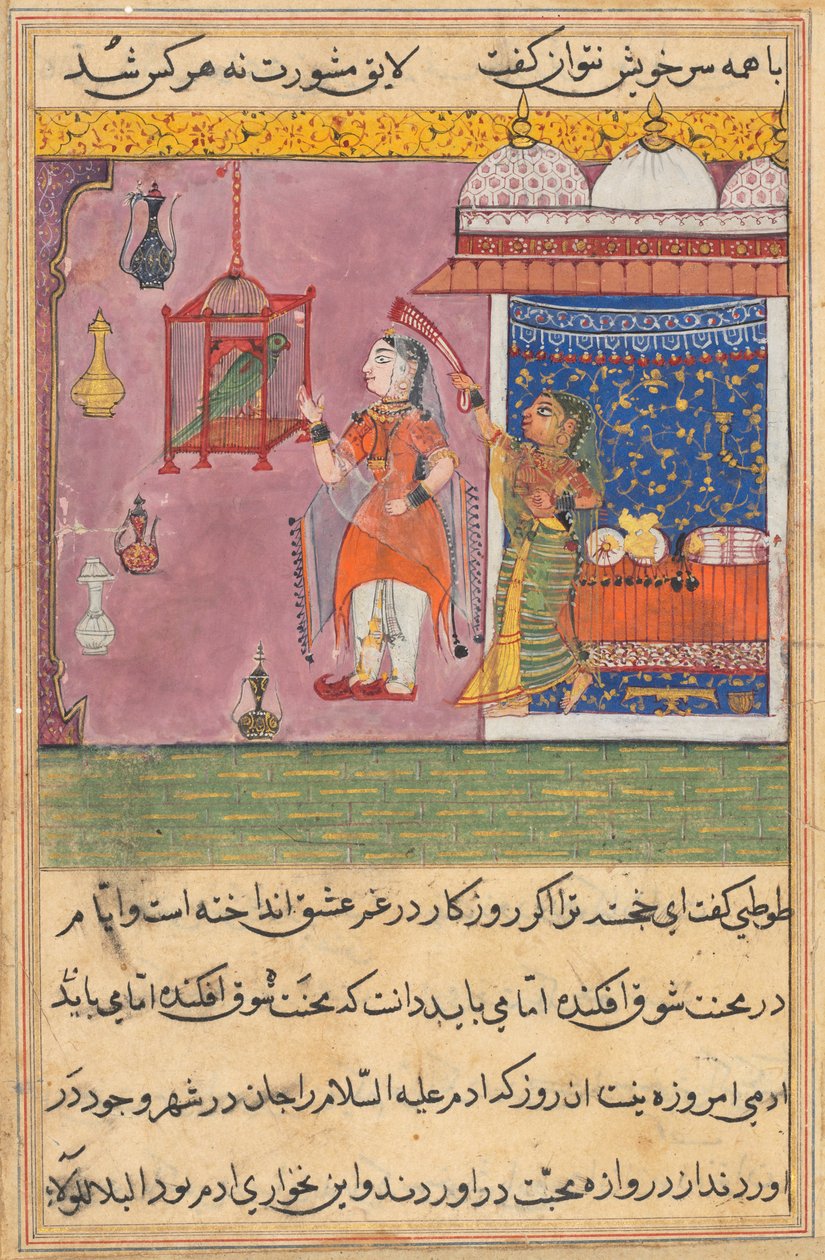 با همه سر خویش نتوان کفت لایق مشورت نه هر کس شد
طوطي کفت اي خجسته ترا اکر روزکار در غم عشق انداخته است و ایّام
در محنت شوق افکنده امّا مي باید دانست که محنت شوق افکنده امّا مي باید
ادمي امروزه ینت ان روز که ادم علیه السّلام را جان در شهر وجود دَر
اوردند از دروازه محبّت در اوردند و این نخواري ادم بود البلا للولاء